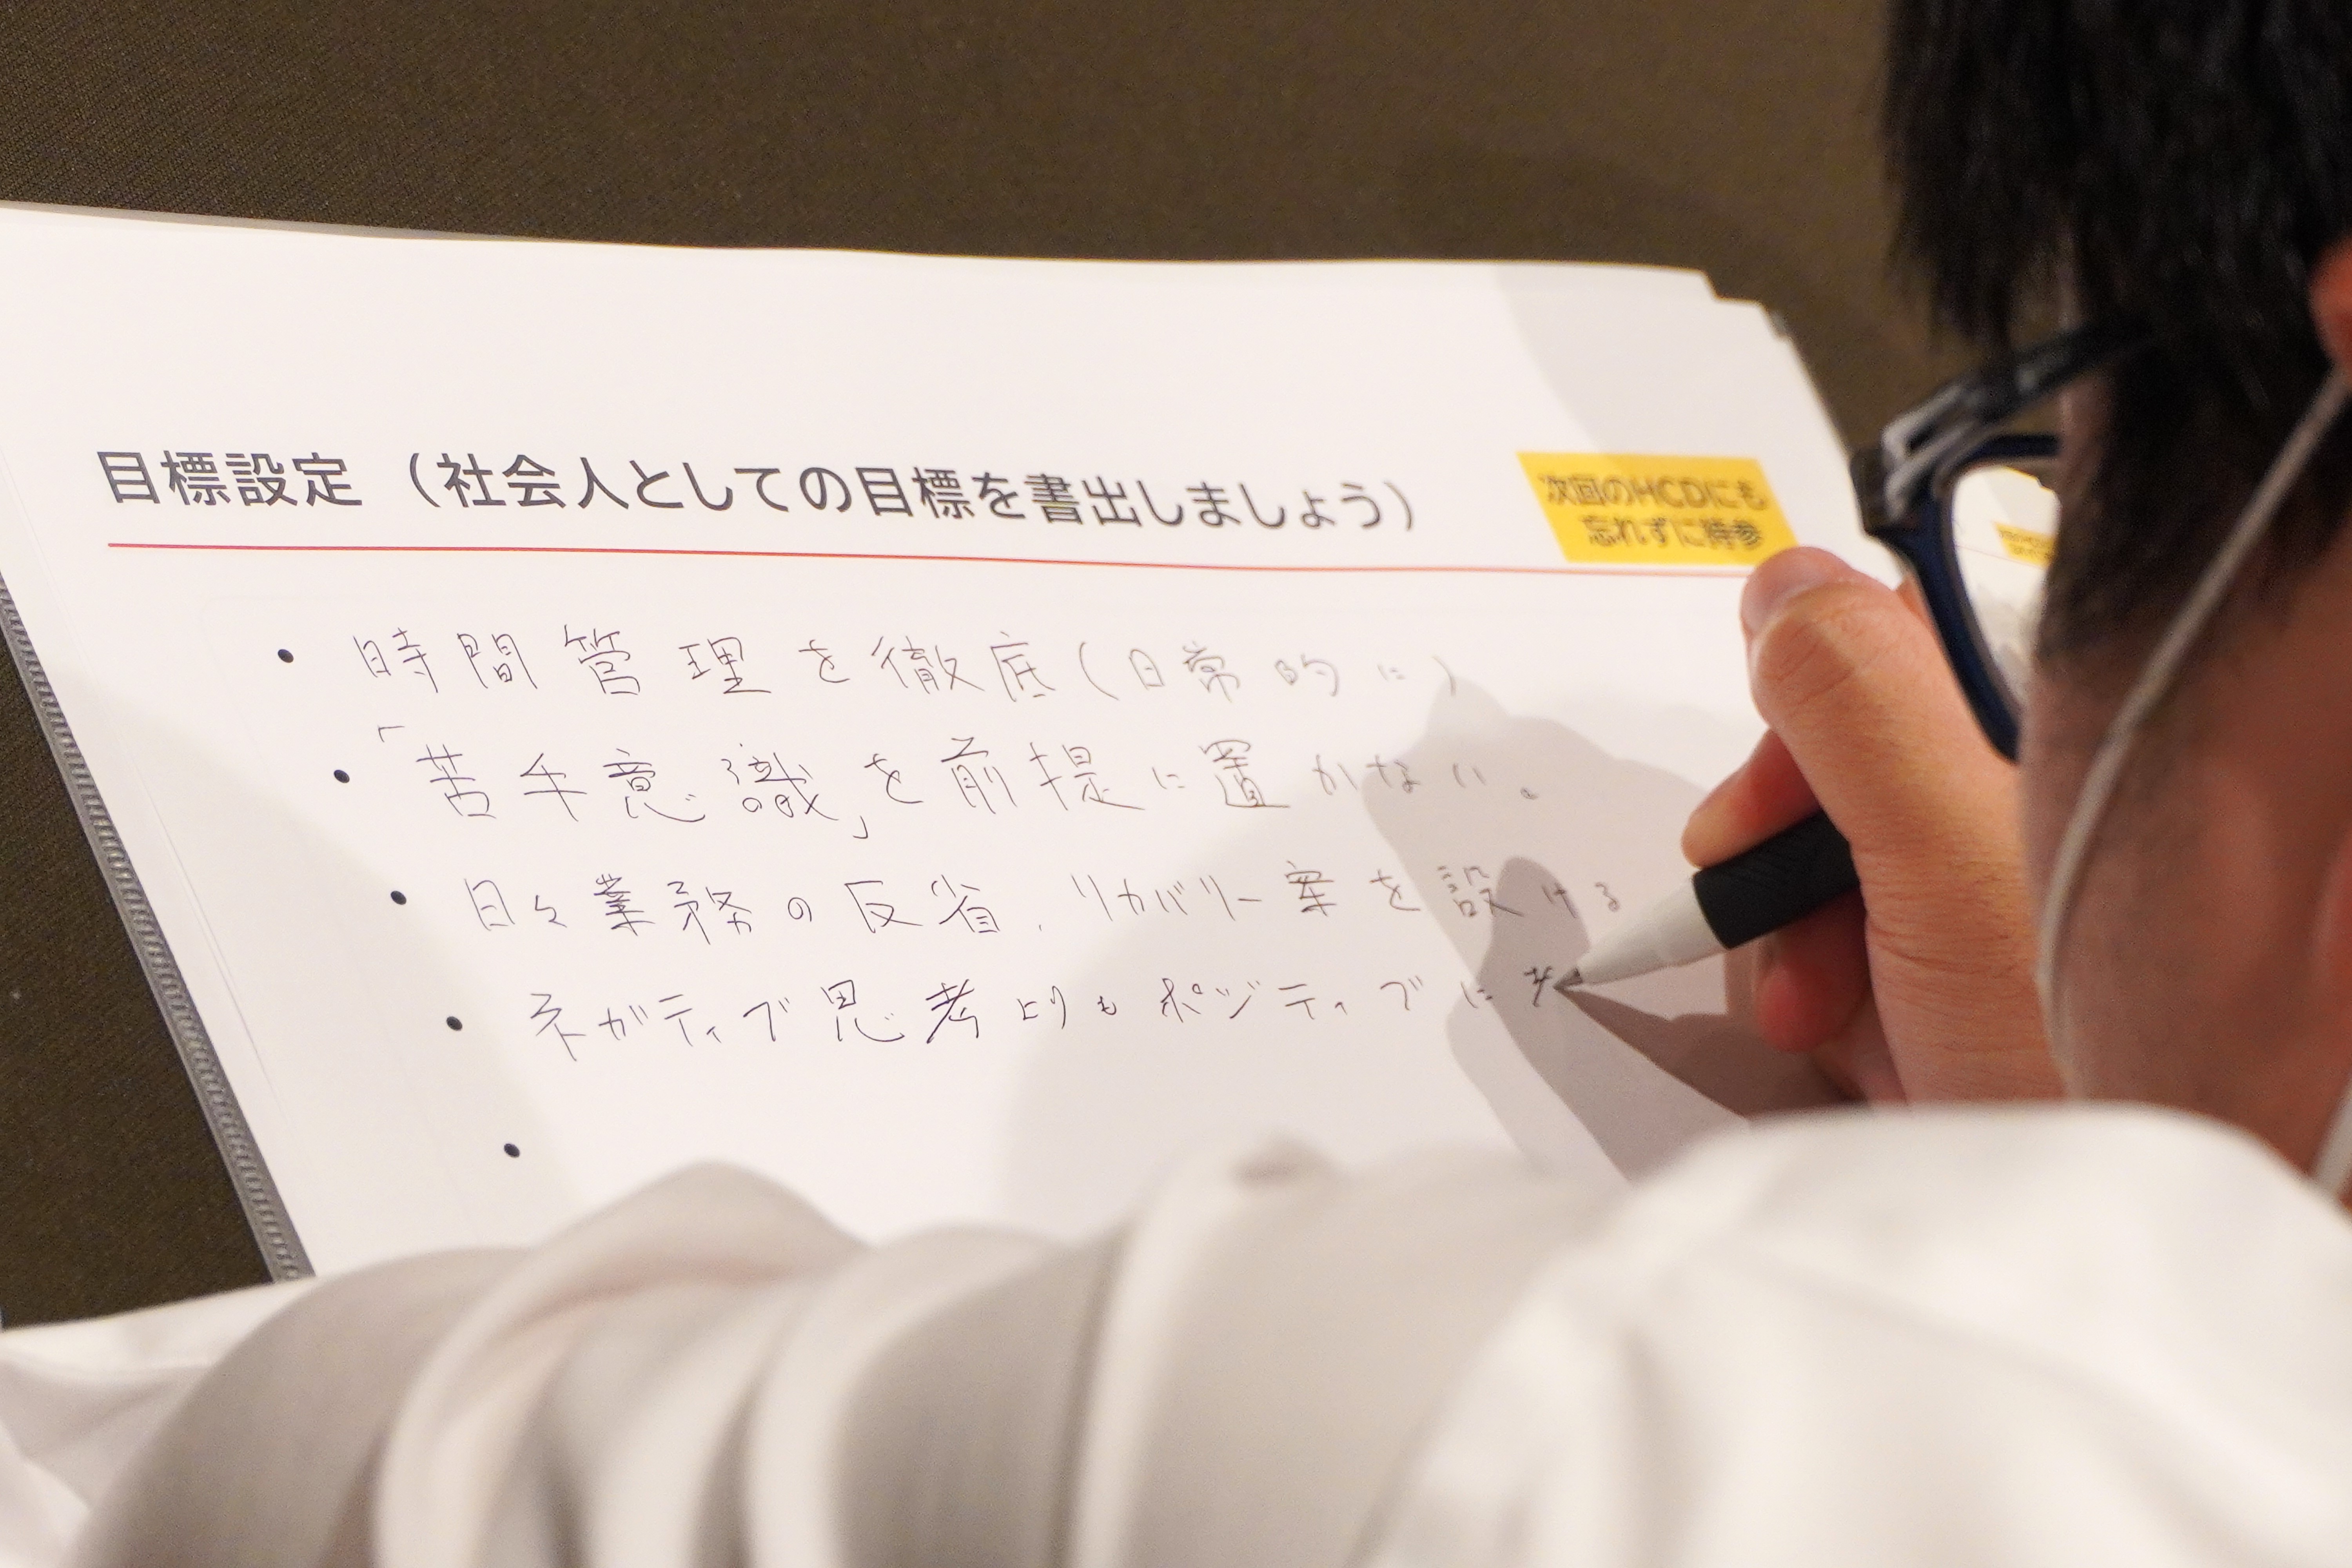 目標設定（社会人としての目標を書出しましょう）
次回のHCDにも
忘れずに持参
• 時間管理を徹底(日常的に)
• 「苦手意識」を前提に置かない。
• 日々業務の反省、リカバリー案を設ける
• ネガティブ思考よりもポジティブに考
•